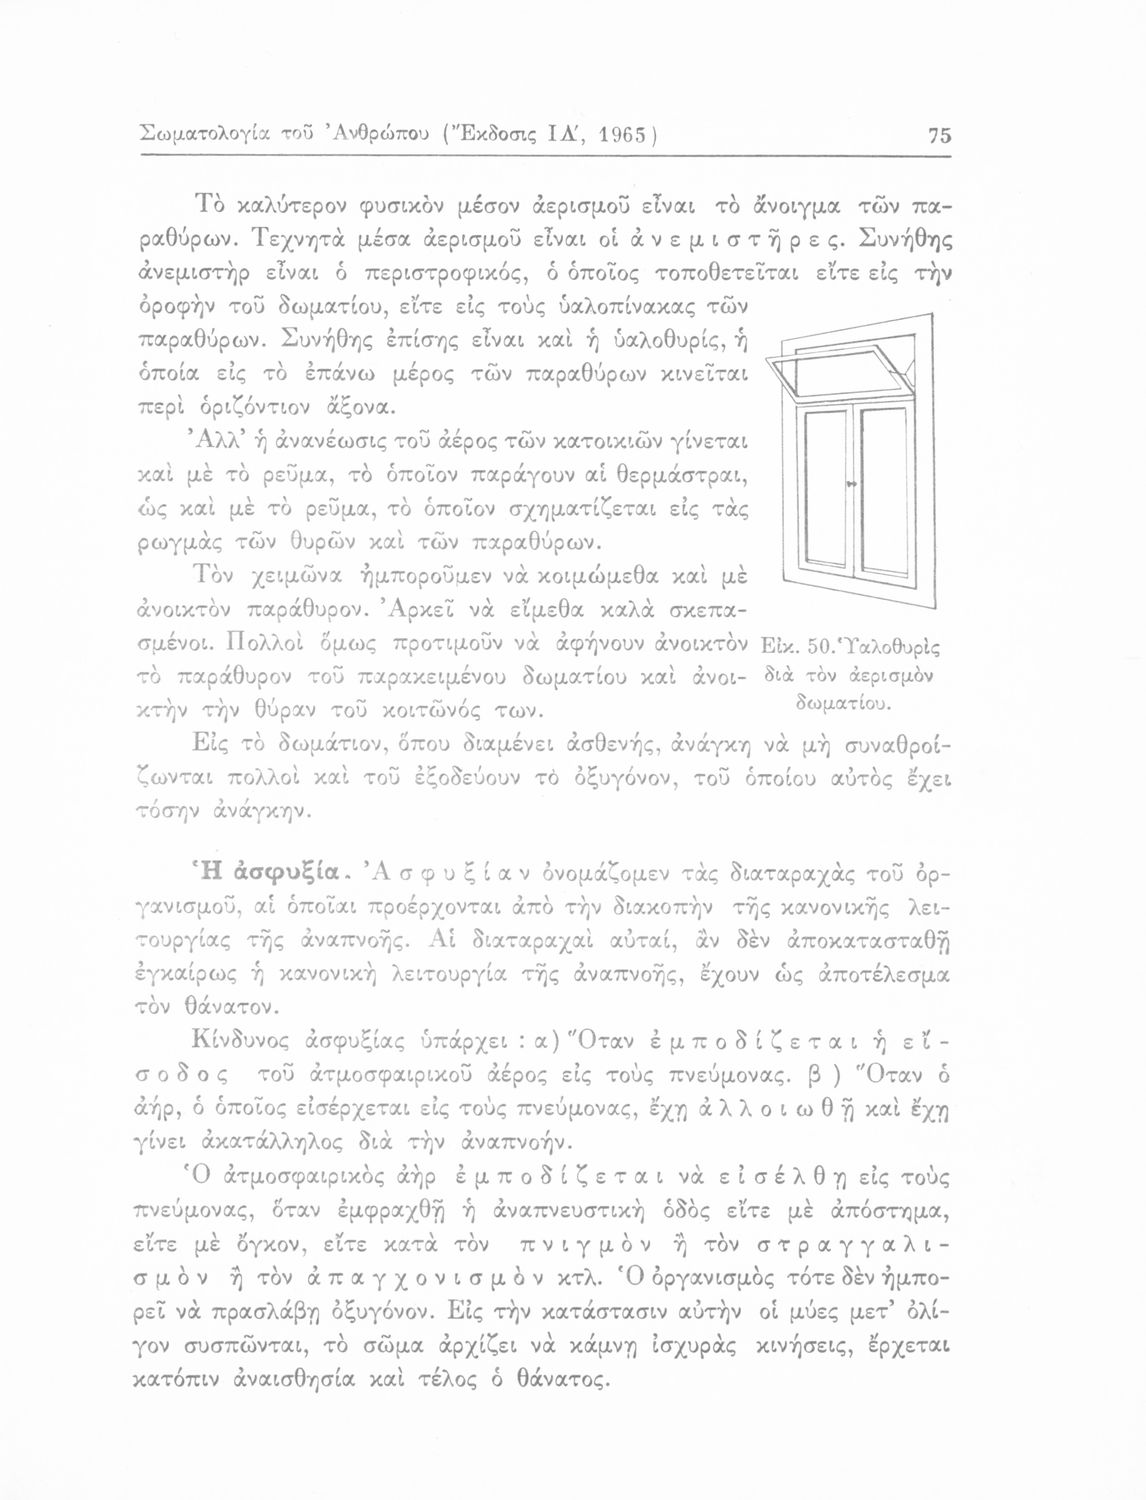 Σωματολογία τοῦ Ἀνθρώπου (Ἔκδοσις ΙΔ', 1965) 75
Τὸ καλύτερον φυσικὸν μέσον ἀερισμοῦ εἶναι τὸ ἄνοιγμα τῶν πα-
ραθύρων. Τεχνητὰ μέσα ἀερισμοῦ εἶναι οἱ ἀνεμιστῆρες. Συνήθης
ἀνεμιστὴρ εἶναι ὁ περιστροφικός, ὁ ὁποῖος τοποθετεῖται εἴτε εἰς τὴν
ὀροφὴν τοῦ δωματίου, εἴτε εἰς τοὺς ὑαλοπίνακας τῶν
παραθύρων. Συνήθης ἐπίσης εἶναι καὶ ἡ ὑαλοθυρίς, ἡ
ὁποία εἰς τὸ ἐπάνω μέρος τῶν παραθύρων κινεῖται
περὶ ὁριζόντιον ἄξονα.
Ἀλλ' ἡ ἀνανέωσις τοῦ ἀέρος τῶν κατοικιῶν γίνεται
καὶ μὲ τὸ ρεῦμα, τὸ ὁποῖον παράγουν αἱ θερμάστραι,
ὡς καὶ μὲ τὸ ρεῦμα, τὸ ὁποῖον σχηματίζεται εἰς τὰς
ρωγμὰς τῶν θυρῶν καὶ τῶν παραθύρων.
Τὸν χειμῶνα ἠμποροῦμεν νὰ κοιμώμεθα καὶ μὲ
ἀνοικτὸν παράθυρον. Ἀρκεῖ νὰ εἴμεθα καλὰ σκεπα-
σμένοι. Πολλοὶ ὅμως προτιμοῦν νὰ ἀφήνουν ἀνοικτὸν
τὸ παράθυρον τοῦ παρακειμένου δωματίου καὶ ἀνοι-
κτὴν τὴν θύραν τοῦ κοιτῶνός των.
Εἰκ. 50. Ὑαλοθυρὶς
διὰ τὸν ἀερισμὸν
δωματίου.
Εἰς τὸ δωμάτιον, ὅπου διαμένει ἀσθενής, ἀνάγκη νὰ μὴ συναθροί-
ζωνται πολλοὶ καὶ τοῦ ἐξοδεύουν τὸ ὀξυγόνον, τοῦ ὁποίου αὐτὸς ἔχει
τόσην ἀνάγκην.
Ἡ ἀσφυξία. Ἀσφυξίαν ὀνομάζομεν τὰς διαταραχὰς τοῦ ὀρ-
γανισμοῦ, αἱ ὁποῖαι προέρχονται ἀπὸ τὴν διακοπὴν τῆς κανονικῆς λει-
τουργίας τῆς ἀναπνοῆς. Αἱ διαταραχαὶ αὐταί, ἂν δὲν ἀποκατασταθῇ
ἐγκαίρως ἡ κανονικὴ λειτουργία τῆς ἀναπνοῆς, ἔχουν ὡς ἀποτέλεσμα
τὸν θάνατον.
Κίνδυνος ἀσφυξίας ὑπάρχει : α) Ὅταν ἐμποδίζεται ἡ εἴ-
σοδος τοῦ ἀτμοσφαιρικοῦ ἀέρος εἰς τοὺς πνεύμονας. β ) Ὅταν ὁ
ἀήρ, ὁ ὁποῖος εἰσέρχεται εἰς τοὺς πνεύμονας, ἔχῃ ἀλλοιωθῇ καὶ ἔχῃ
γίνει ἀκατάλληλος διὰ τὴν ἀναπνοήν.
Ὁ ἀτμοσφαιρικὸς ἀὴρ ἐμποδίζεται νὰ εἰσέλθῃ εἰς τοὺς
πνεύμονας, ὅταν ἐμφραχθῇ ἡ ἀναπνευστικὴ ὁδὸς εἴτε μὲ ἀπόστημα,
εἴτε μὲ ὄγκον, εἴτε κατὰ τὸν πνιγμὸν ἢ τὸν στραγγαλι-
σμὸν ἢ τὸν ἀπαγχονισμὸν κτλ. Ὁ ὀργανισμὸς τότε δὲν ἠμπο-
ρεῖ νὰ πρασλάβῃ ὀξυγόνον. Εἰς τὴν κατάστασιν αὐτὴν οἱ μύες μετ' ὀλί-
γον συσπῶνται, τὸ σῶμα ἀρχίζει νὰ κάμνῃ ἰσχυρὰς κινήσεις, ἔρχεται
κατόπιν ἀναισθησία καὶ τέλος ὁ θάνατος.